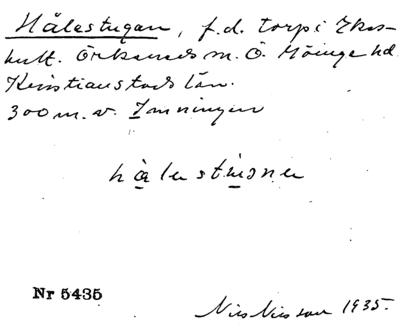 Hålastugan, f.d. torp i Ekes-
hult. Örkeneds sn. Ö. Göinge hd
Kristianstads län.
300 m. v. Lönningen
Nr 5435
Nils Nilsson 1935.